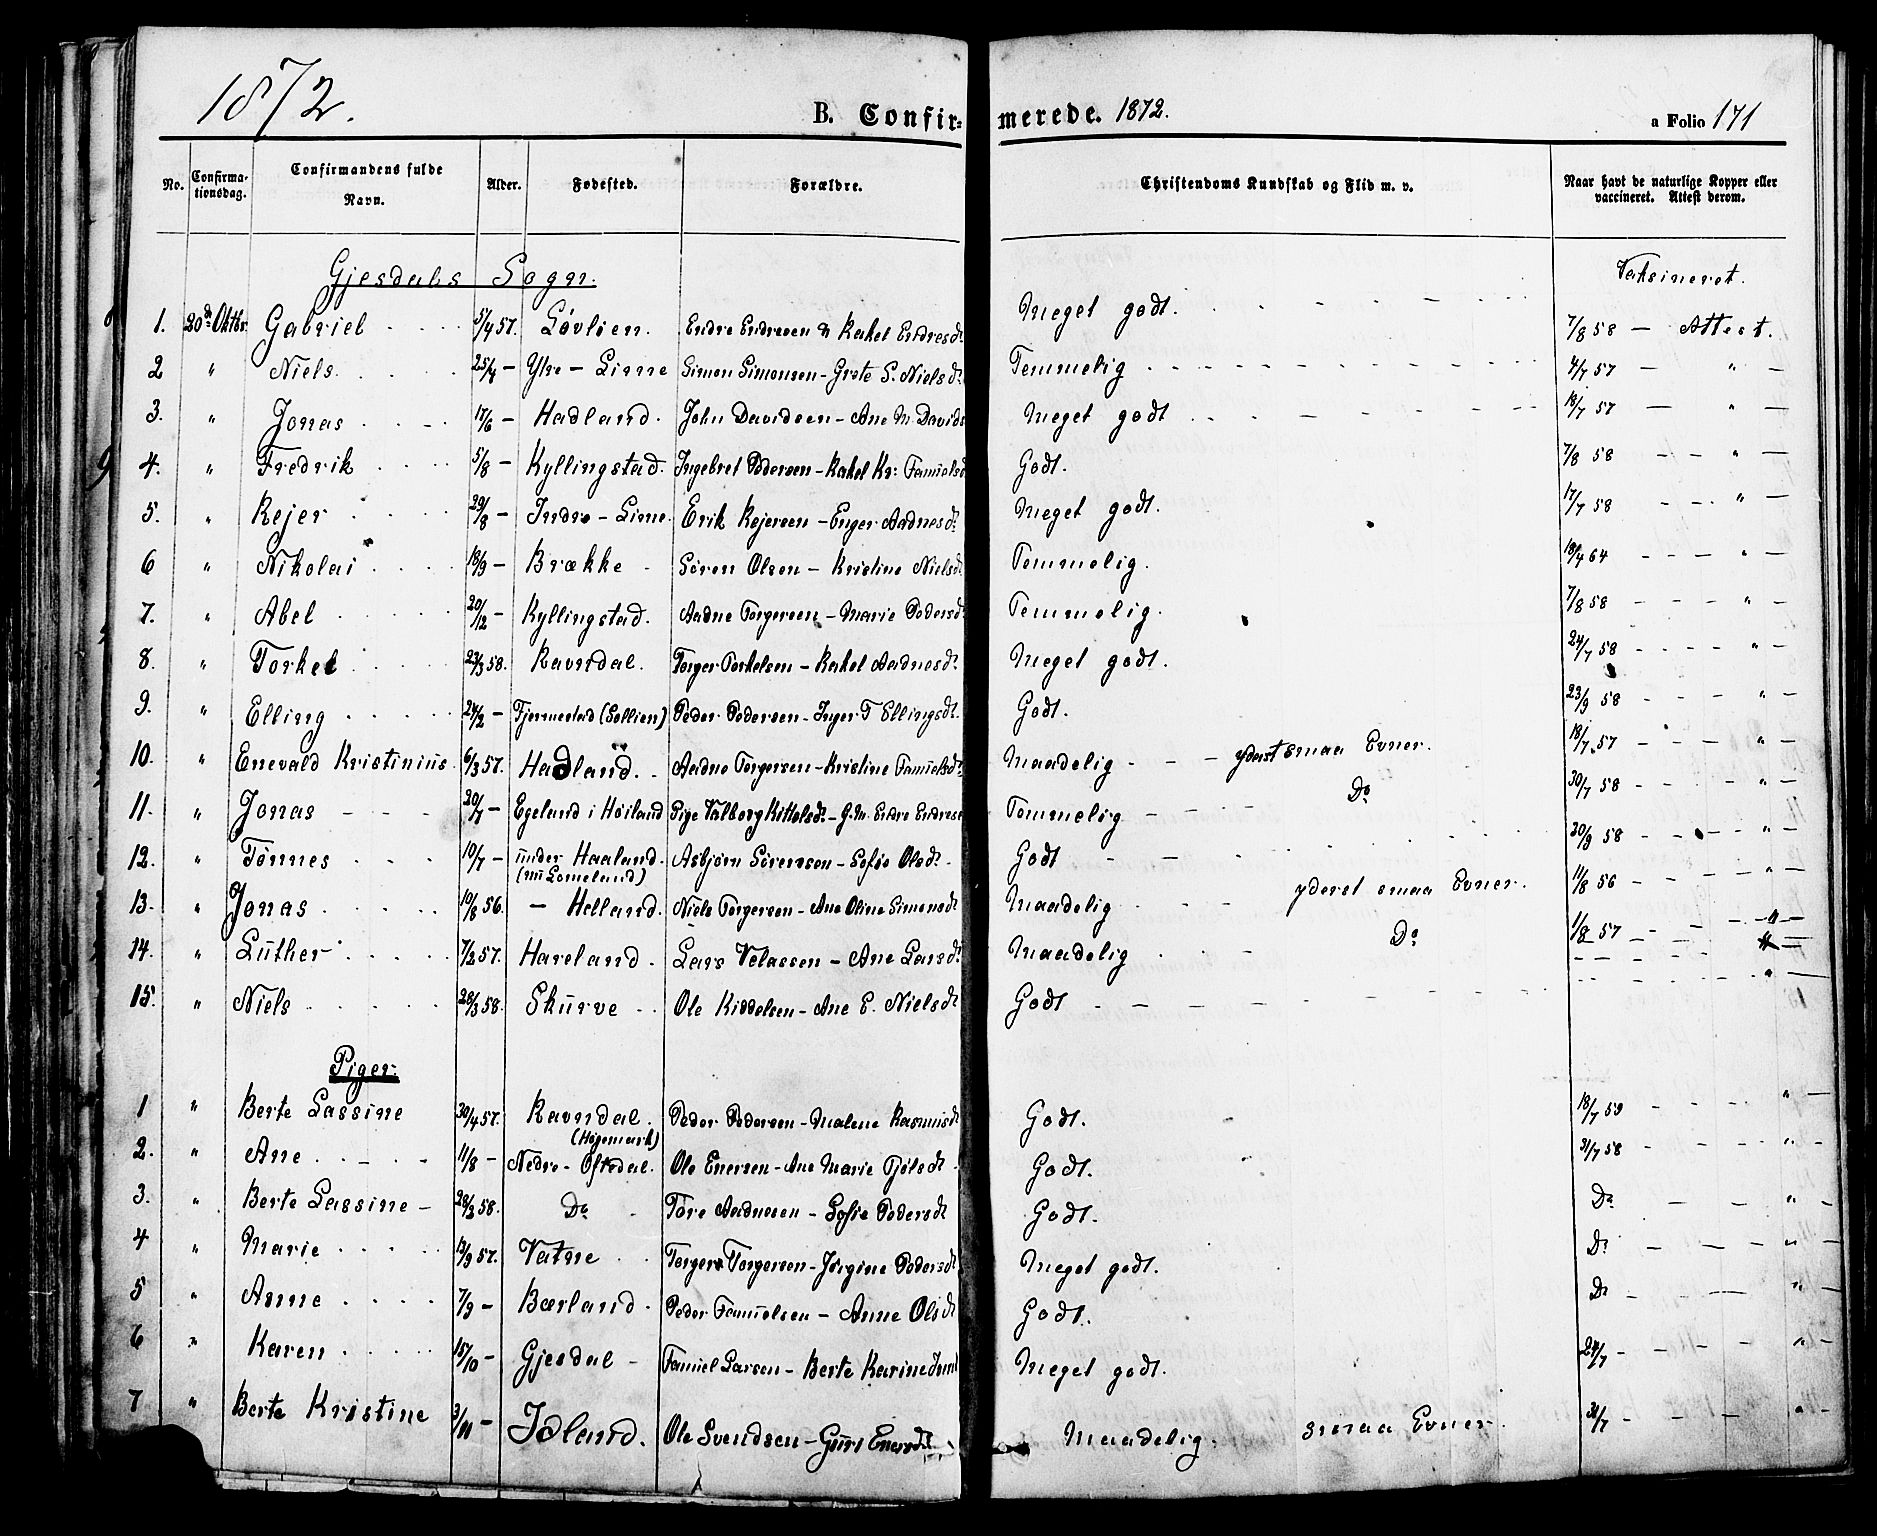 1872.
B. Confirmerede. 1872.
a Folio 171
No. Confirmationsdag. Confirmandens fulde Navn. Alder. Fødested. Forældre. Christendoms Kundskab og Flid m. v. Naar havt de naturlige Kopper eller vaccineret. Attest derom.
Gjesdals Sogn. Vaksineret.
1. 20de Oktbr. Gabriel 5/4 57. Løvlien. Endre Endresen & Rakel Endresdt. Meget godt. 7/8 58 — Attest.
2 " Niels. 25/4 — Ytre — Lime Simon Simonsen — Grete S. Nielsdt. Temmelig 4/7 57 — " —
3. " Jonas 17/6 — Hadland. John Davidsen — Ane M. Davids Meget godt 18/7 57 — " —
4. " Fredrik 5/8 — Kyllingstad. Ingebret Pedersen — Rakel Kr: Tanielsd Godt. 7/8 58 — " —
5. " Rejer 29/8 — Indre — Lime. Erik Rejersen — Enger Aadnesdt. Meget godt. 17/7 58 — " —
6 " Nikolai 18/9 — Brække Sören Olsen — Kristine Nielsdt. Temmelig. 18/4 64 — " —
7. " Abel 20/12 — Kyllingstad. Aadne Torgersen — Marie Pedersdt. Temmelig. 7/8 58 — " —
8. " Torkel 23/3 58. Ravndal. Torger Torkelsen — Rakel Aadnesdt. Meget godt. 24/7 58 — " —
9. " Elling 24/2 — Fjermestad (Sollien) Peder Pedersen — Inger T Ellingsdt. Godt. 23/9 58 — " —
10. " Enevald Kristinius 6/3 57. Hadland. Aadne Torgersen — Kristine Tanielsdt. Maadelig — yderst smaa Evner. 18/7 57 — " —
11. " Jonas 20/7 — Egeland i Høiland Pige Valborg Kittelsdt. — G. M. Endre Endresen Temmelig — Do 30/7 58 — " —
12. " Tönnes 10/7 — under Haaland. (nu Lomeland) Asbjørn Sörensen — Sofie Olsdt. Godt 20/9 58 — " —
13. " Jonas 10/8 56. — Helland. Niels Torgersen — Ane Oline Simonsdt Maadelig yderst smaa Evner. 11/8 56 — " —
14. " Luther 7/2 57. Hareland. Lars Velassen — Ane Larsdt. Maadelig Do 1/8 57 — " —
15. " Niels 28/3 58. Skurve Ole Kiddelsen — Ane E. Nielsdt Godt — " —
Piger.
1 " Berte Lassine 30/4 57. Ravndal. Peder Pedersen — Malene Rasmusdt Godt. 18/7 59 — " —
2. " Ane 11/8 — (Högemark) Nedre — Oftedal. Ole Enersen — Ane Marie Tjölsdt Godt. 31/7 58 — " —
3. " Berte Lassine — 28/2 58. Do Töre Aadnesen — Sofie Pedersdt Godt. Do — " —
4 " Marie 13/9 57. Vatne Torger Torgersen — Jörgine Pedersdt Meget godt. Do — " —
5 " Anne 7/9 — Bærland. Peder Tanielsen — Anne Olsdt Godt. Do — " —
6 " Karen 15/10 — Gjesdal — Taniel Larsen — Berte Karine Meget godt. 24/7 — " —
7 " Berte Kristine 3/11 — Idland. Ole Svendsen — Guri Enersdt. Maadelig. smaa Evner. 31/7 — " —